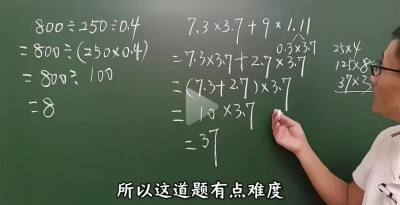 800÷250÷0.4
=800÷(250×0.4)
=800÷100
=8
7.3×3.7+9×1.11
0.3×3.7
=7.3×3.7+2.7×3.7
=(7.3+2.7)×3.7
=10×3.7
=37
25×4
125×8
37×3
所以这道题有点难度